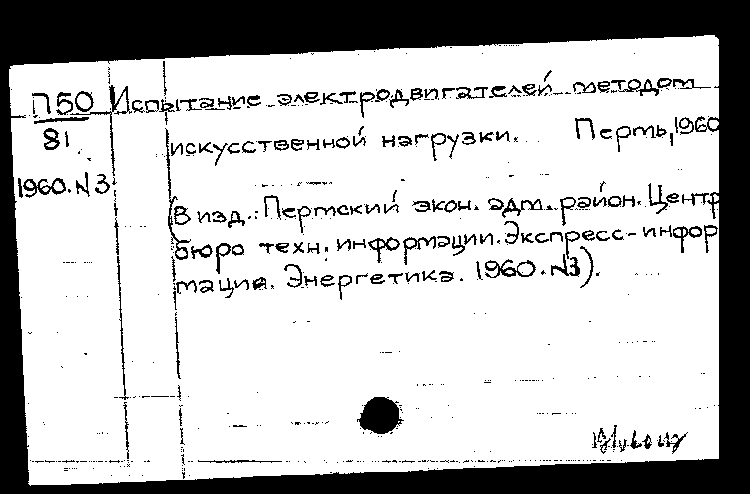 П50 Испытание электродвигателей методом
81 искусственной нагрузки. Пермь, 1960
1960. N3
(В изд.: Пермский экон. адм. район. Центр
бюро техн. информации. Экспресс-инфор
мация. Энергетика. 1960. N3).